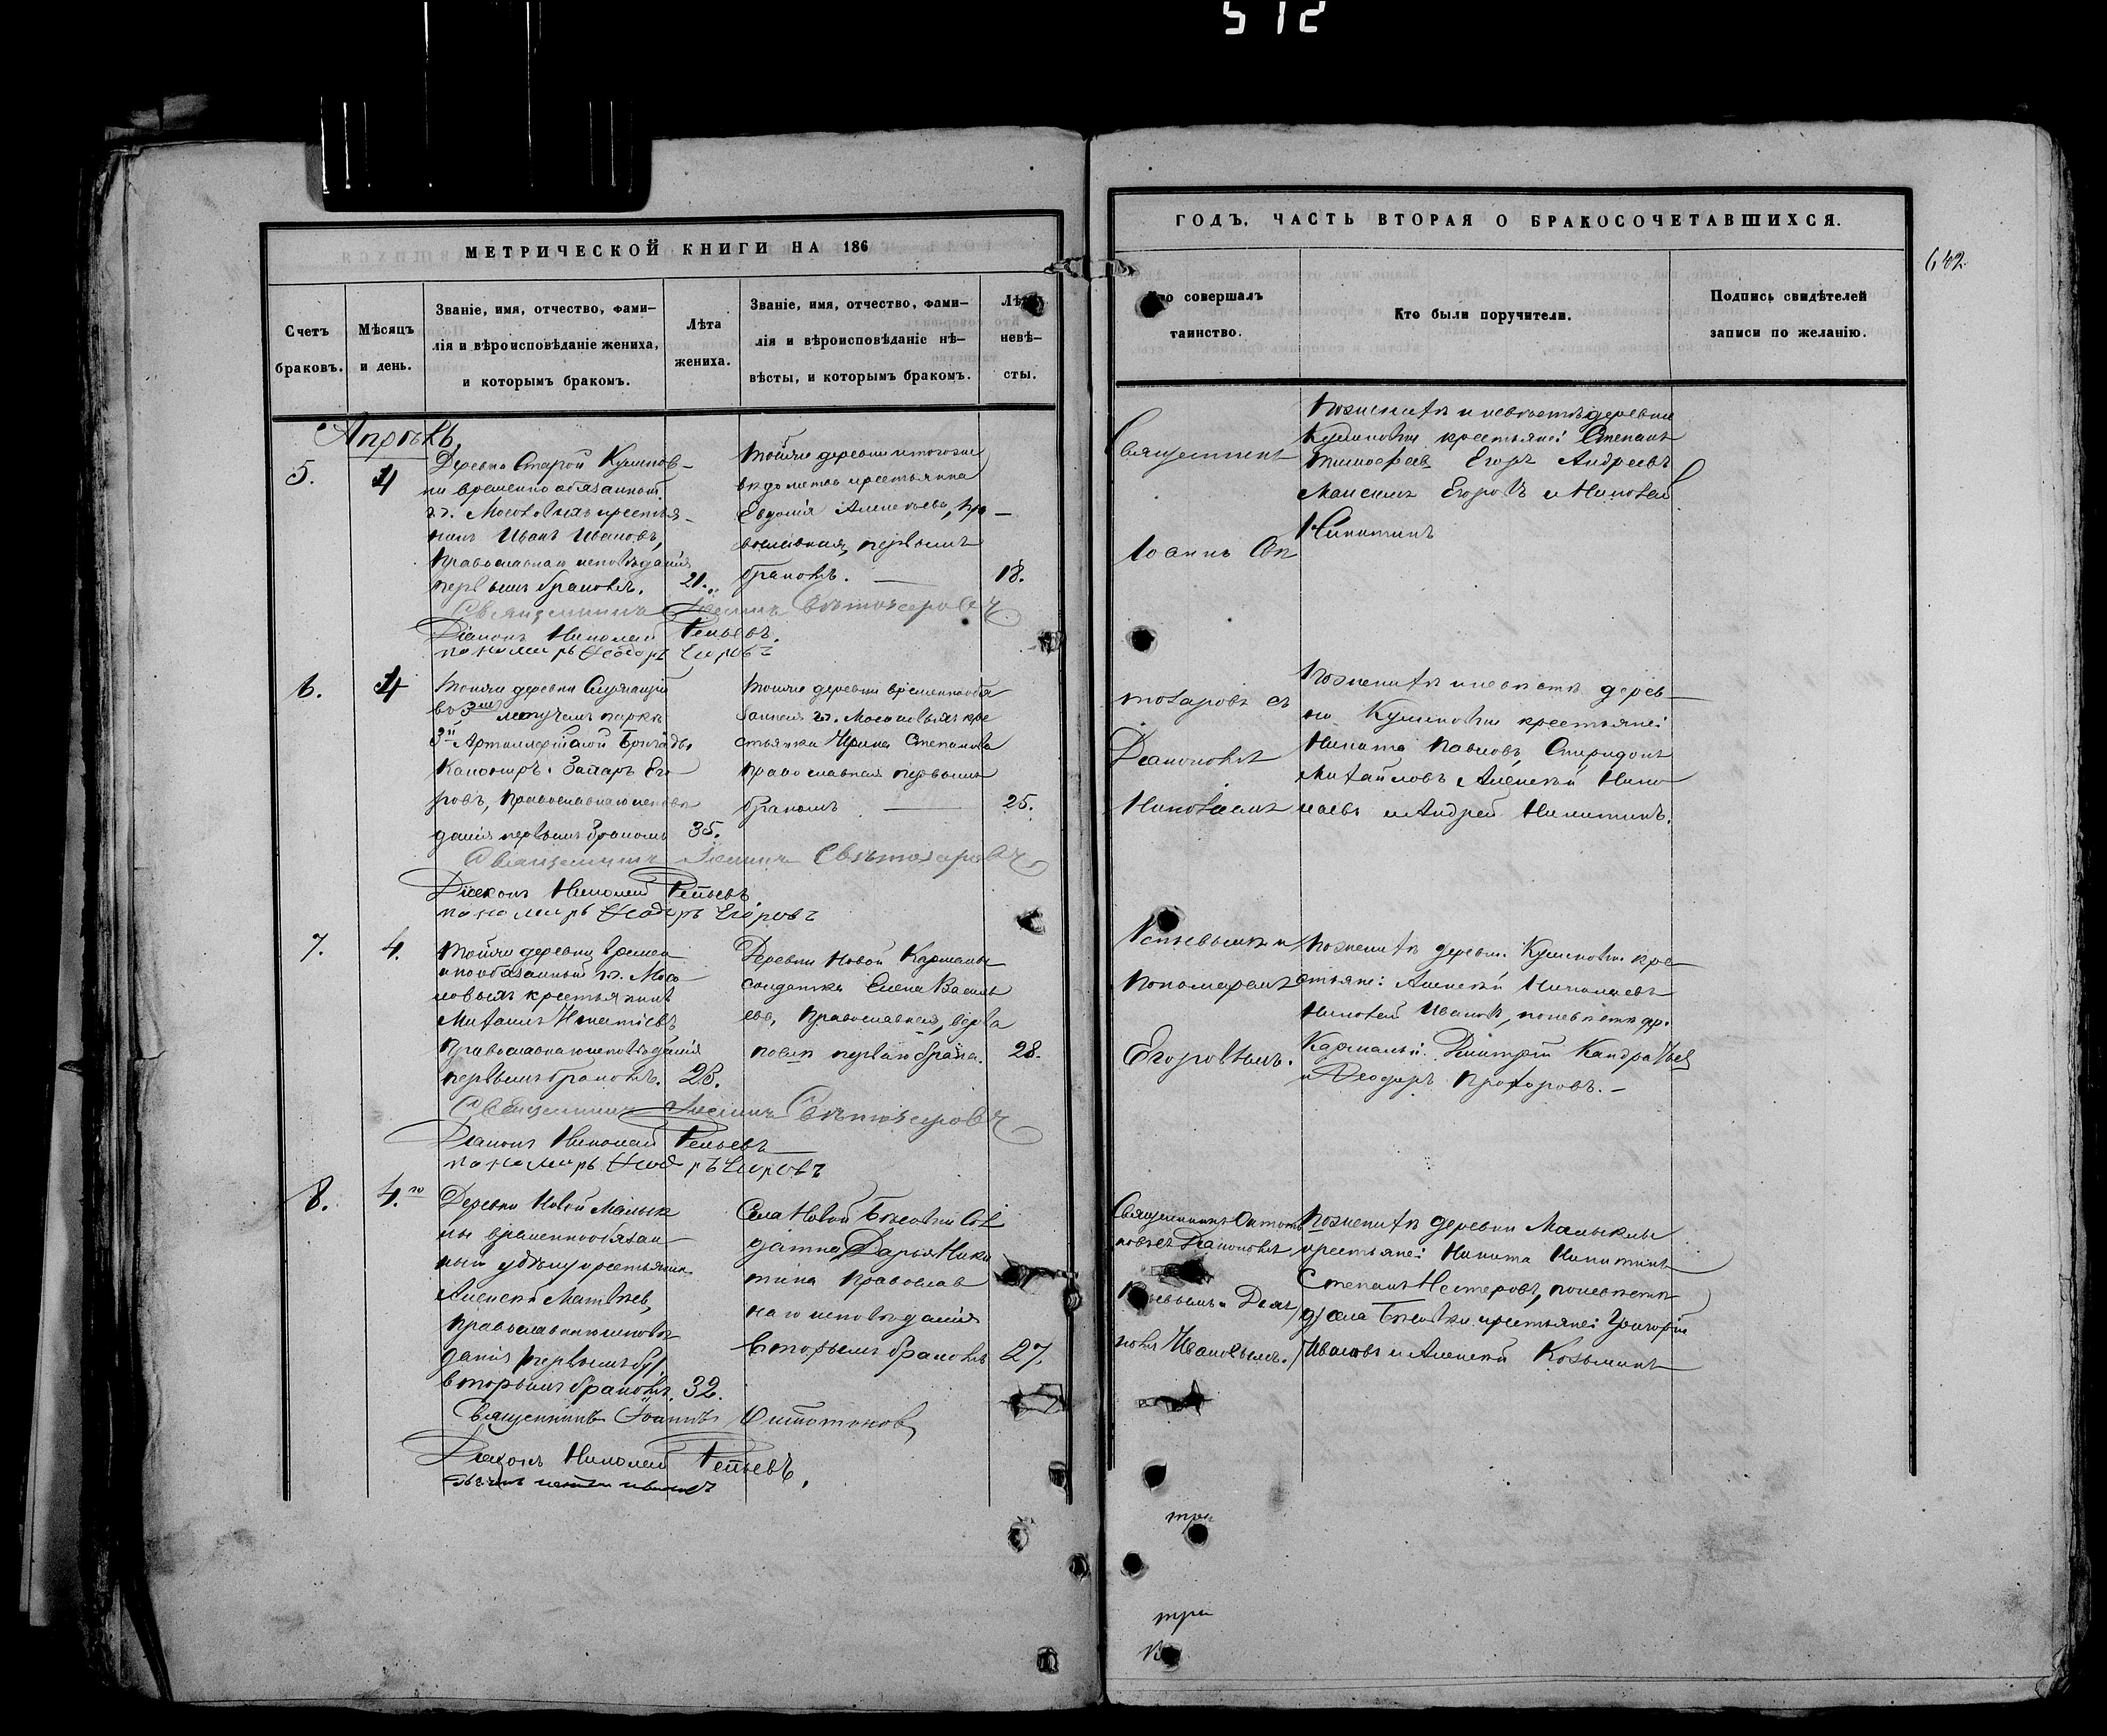 512
МЕТРИЧЕСКОЙ КНИГИ НА 186
Счетъ браковъ.
Мѣсяцъ и день.
Званіе, имя, отчество, фами-
лія и вѣроисповѣданіе жениха,
и которымъ бракомъ.
Лѣта жениха.
Званіе, имя, отчество, фами-
лія и вѣроисповѣданіе нѣ-
вѣсты, и которымъ бракомъ.
невѣ-
сты.
Апрѣль
5.
4
Деревни Старой Кулинов-
ки временно обязанной
крестья-
нинъ Иванъ Ивановъ,
православнаго исповѣданія
первымъ бракомъ.
21.
Тойже деревни и тогоже
крестьянка
Евдокія Алексѣева, пра-
вославная, первымъ
бракомъ.
18.
Священникъ Іоаннъ Свѣтозаровъ
Діаконъ Николай Репьевъ.
пономарь Ѳеодоръ Егоровъ
6.
4
Тойже деревни Служащій
въ 3мъ летучемъ паркѣ
3й Артиллерійской Бригады
Захаръ Его-
ровъ, православнаго исповѣ-
данія первымъ бракомъ
35.
Тойже деревни временнообя-
занныхъ гг. Мосоловыхъ кре-
стьянка Ирина Степанова
православная первымъ
бракомъ
25.
Священникъ Іоаннъ Свѣтозаровъ
Діаконъ Николай Репьевъ.
пономарь Ѳеодоръ Егоровъ
7.
4.
Тойже деревни времен-
нообязанный гг. Мосо-
ловыхъ крестьянинъ
Михаилъ Игнатіевъ
Православнаго исповѣданія
первымъ бракомъ.
Деревни Новой
солдатка Елена Василь-
ева, православная, вдова
послѣ перваго брака.
28.
Священникъ Іоаннъ Свѣтозаровъ
Діаконъ Николай Репьевъ
пономарь Ѳеодоръ Егоровъ
8.
4.го
Деревни Новой Малык-
лы временнообязан-
ный крестьянинъ
Алексѣй Матвѣевъ,
православнаго исповѣ-
данія
вторымъ бракомъ.
32.
Села Новой Бѣсовки Сол-
датка Дарья Ники-
тина православ-
наго исповѣданія
вторымъ бракомъ
27.
Священникъ Іоаннъ
Діаконъ Николай Репьевъ.
ГОДЪ, ЧАСТЬ ВТОРАЯ О БРАКОСОЧЕТАВШИХСЯ.
642
совершалъ
таинство.
Кто были поручители.
Подпись свидѣтелей
записи по желанію.
Священникъ
Іоаннъ Свѣ-
тозаровъ съ
Діакономъ
Николаемъ
Репьевымъ и
Пономаремъ
Егоровымъ.
По женихѣ и невѣстѣ деревни
Кулиновки крестьяне: Степанъ
Тимофѣевъ Егоръ Андреевъ
Максимъ Егоровъ и Николай
Никитинъ
По женихѣ и невѣстѣ дерев-
ни Кулиновки крестьяне:
Никита Павловъ, Спиридонъ
Михайловъ Алексѣй Нико-
лаевъ и Андрей Никитинъ.
По женихѣ деревни Кулиновки кре-
стьяне: Алексѣй Николаевъ
Николай Ивановъ, по невѣстѣ дер.
Дмитрій Кандратьевъ
и Ѳеодоръ Прохоровъ.
Священникъ
Діакономъ
Ивановымъ.
По женихѣ деревни Малыклы
крестьяне: Никита Никитинъ
Степанъ Нестеровъ, по невѣстѣ
села Бѣсовки крестьяне: Григорій
Ивановъ и Алексѣй Козьминъ